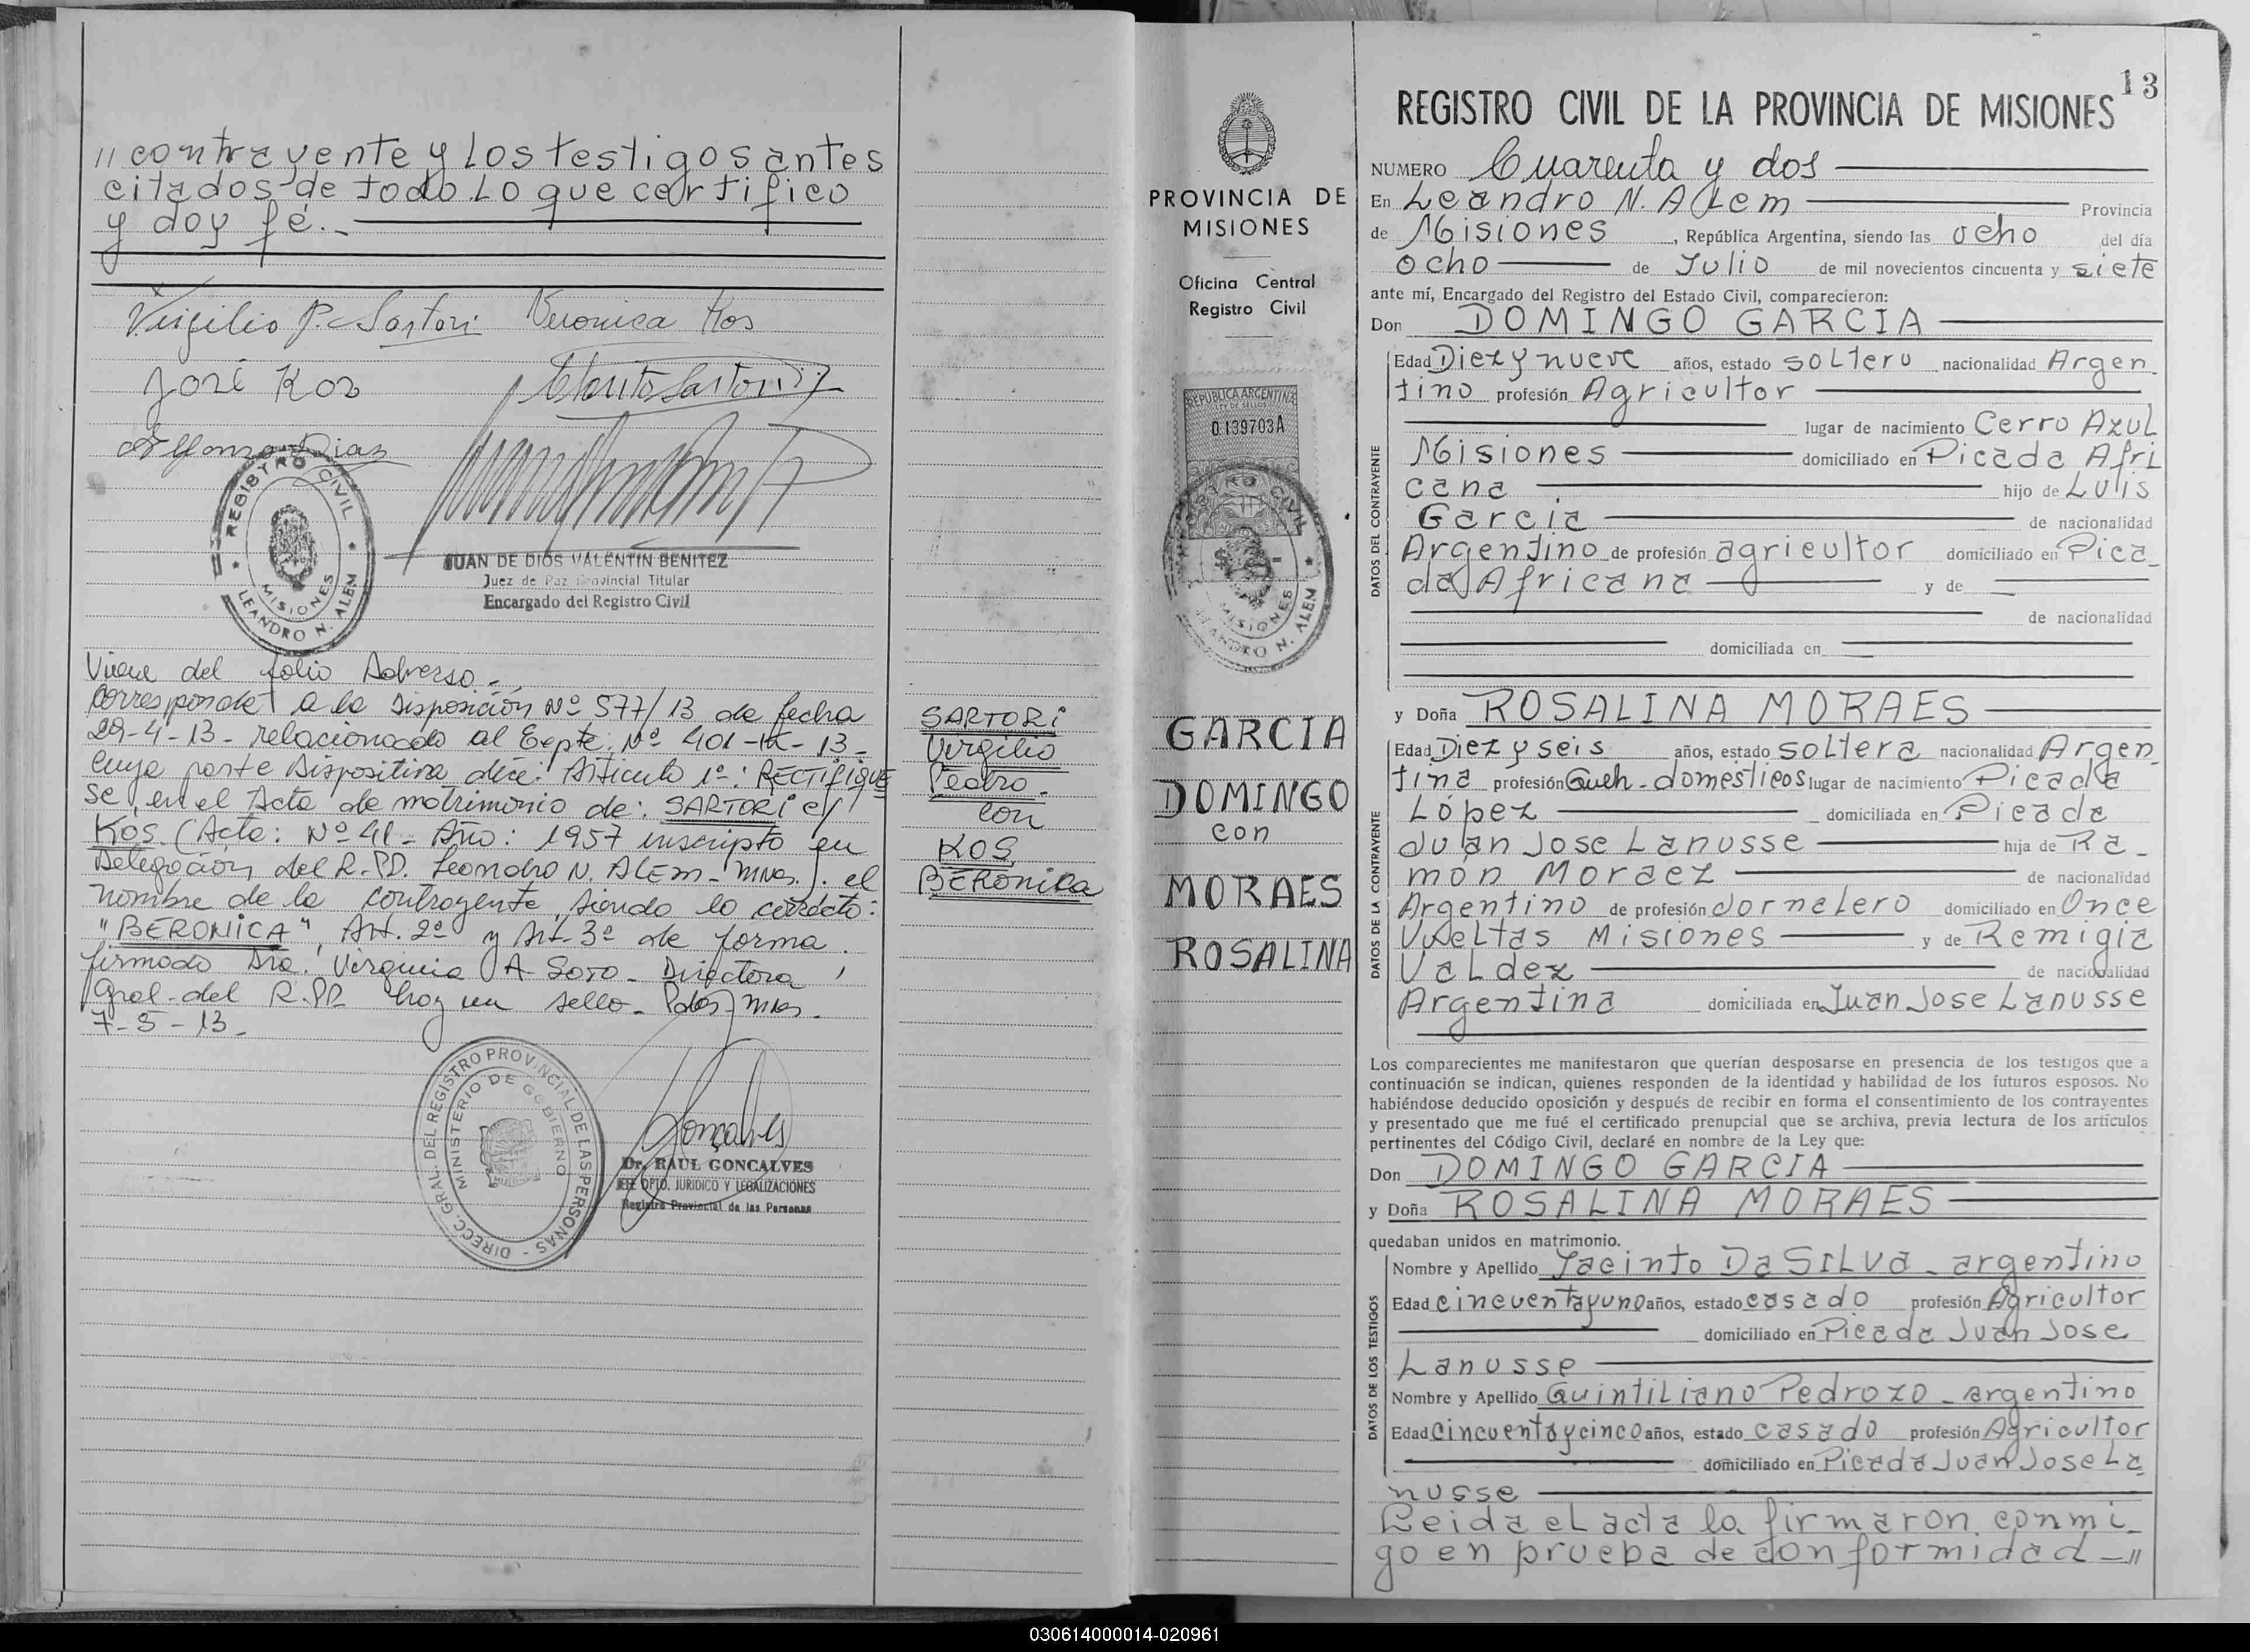 // contrayente y los testigos antes
citados de todo lo que certifico
y doy fé.-
Virgilio P. Sartori Veronica Kos
José Kos
Alfonzo Diaz
REGISTRO CIVIL
MISIONES
LEANDRO N. ALEM
JUAN DE DIOS VALENTIN BENITEZ
Juez de Paz Provincial Titular
Encargado del Registro Civil
Viene del folio Adverso.-
corresponde a la Disposición Nº 577/13 de fecha
29-4-13- relacionado al Expte. Nº 401- -13-
cuya parte Dispositiva dice: Articulo 1º: RECTIFIQUE
SE, en el Acta de matrimonio de: SARTORI c/
KOS. (Acta: Nº 41- Año: 1957 inscripto en
Delegación del R.PP. Leandro N. ALEM- Mnes.): el
nombre de la contrayente, siendo lo correcto:
"BERONICA", Art. 2º y Art. 3º de forma.
firmado Dra. Virginia A. Soto- Directora
Gral. del R.PP. hay un sello- Pdas, Mnes.
7-5-13-
SARTORI
Virgilio
Pedro.-
con
KOS
BERONICA
DIRECC. GRAL. DEL REGISTRO PROVINCIAL DE LAS PERSONAS -
MINISTERIO DE GOBIERNO
Gonçalves
Dr. RAUL GONCALVES
JEFE DPTO. JURIDICO Y LEGALIZACIONES
Registro Provincial de las Personas
PROVINCIA DE
MISIONES
Oficina Central
Registro Civil
REPUBLICA ARGENTINA
LEY DE SELLOS
0.139703A
REGISTRO CIVIL
MISIONES
LEANDRO N. ALEM
GARCIA
DOMINGO
con
MORAES
ROSALINA
13
REGISTRO CIVIL DE LA PROVINCIA DE MISIONES
NUMERO Cuarenta y dos
En Leandro N. Alem Provincia
de Misiones, República Argentina, siendo las ocho del día
ocho de Julio de mil novecientos cincuenta y siete
ante mí, Encargado del Registro del Estado Civil, comparecieron:
Don DOMINGO GARCIA
DATOS DEL CONTRAYENTE
Edad Diez y nueve años, estado soltero nacionalidad Argen
tino profesión Agricultor
lugar de nacimiento Cerro Azul
Misiones domiciliado en Picada Afri
cana hijo de Luis
Garcia de nacionalidad
Argentino de profesión agricultor domiciliado en Pica
da Africana y de
de nacionalidad
domiciliada en
y Doña ROSALINA MORAES
DATOS DE LA CONTRAYENTE
Edad Diez y seis años, estado soltera nacionalidad Argen
tina profesión Queh-domesticos lugar de nacimiento Picada
López domiciliada en Picada
Juan Jose Lanusse hija de Ra-
món Moraez de nacionalidad
Argentino de profesión Jornalero domiciliado en Once
Vueltas Misiones y de Remigia
Valdez de nacionalidad
Argentina domiciliada en Juan Jose Lanusse
Los comparecientes me manifestaron que querían desposarse en presencia de los testigos que a
continuación se indican, quienes responden de la identidad y habilidad de los futuros esposos. No
habiéndose deducido oposición y después de recibir en forma el consentimiento de los contrayentes
y presentado que me fué el certificado prenupcial que se archiva, previa lectura de los artículos
pertinentes del Código Civil, declaré en nombre de la Ley que:
Don DOMINGO GARCIA
y Doña ROSALINA MORAES
quedaban unidos en matrimonio.
DATOS DE LOS TESTIGOS
Nombre y Apellido Jacinto Da Silva - argentino
Edad cincuenta y uno años, estado casado profesión Agricultor
domiciliado en Picada Juan Jose
Lanusse
Nombre y Apellido Quintiliano Pedrozo - argentino
Edad Cincuenta y cinco años, estado casado profesión Agricultor
domiciliado en Picada Juan Jose La
nusse
Leida el acta la firmaron conmi-
go en prueba de conformidad-//
030614000014-020961